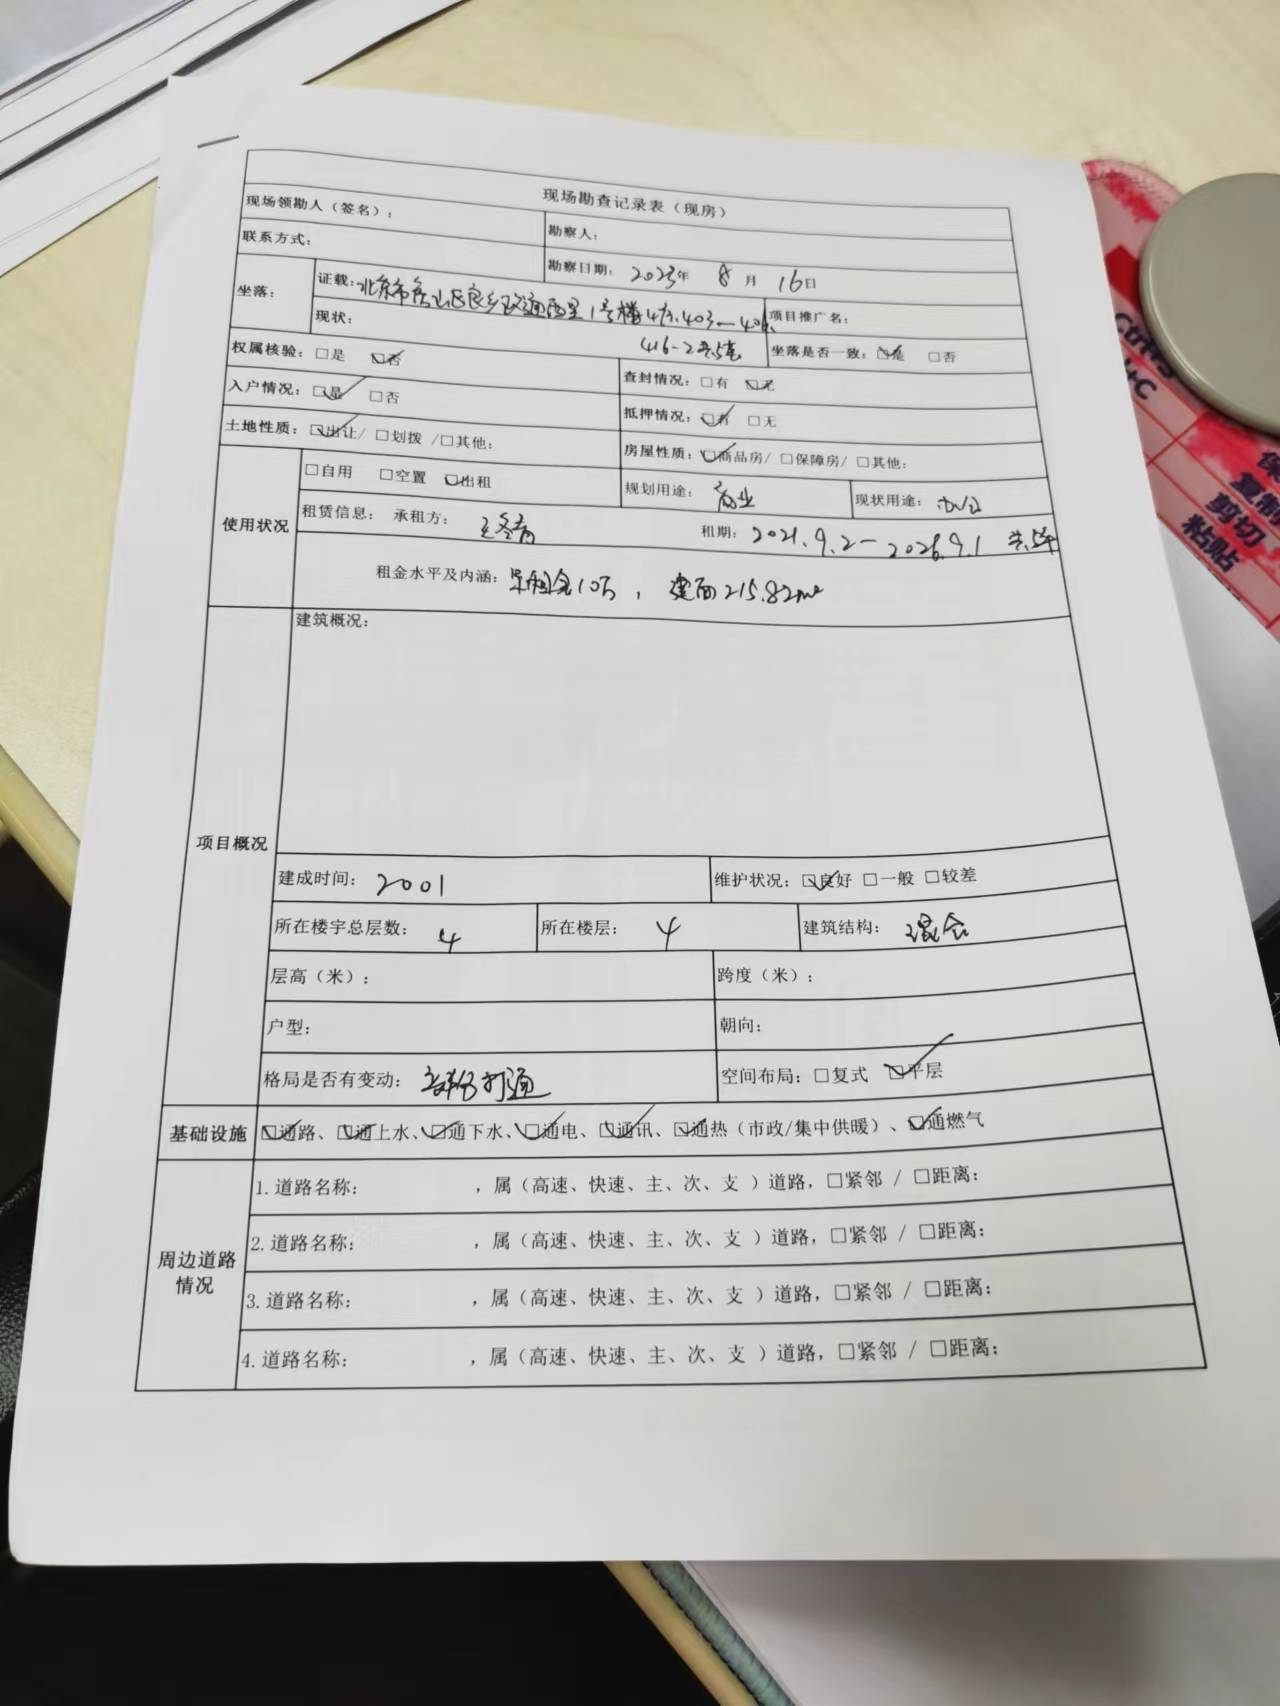 现场勘查记录表（现房）
现场领勘人（签名）：
勘察人：
联系方式：
勘察日期： 2023年 8月 16日
坐落：
证载：北京市房山区良乡政通西里1号楼4层403—406、
416-2共5套
现状：
项目推广名：
坐落是否一致：☑是 □否
权属核验：□是 ☑否
查封情况：□有 ☑无
入户情况：☑是 □否
抵押情况：☑有 □无
土地性质：☑出让/ □划拨 /□其他：
房屋性质：☑商品房/ □保障房/ □其他：
使用状况
□自用 □空置 ☑出租
规划用途： 商业
现状用途： 办公
租赁信息： 承租方：
租期：2021.9.2—2026.9.1 共5年
租金水平及内涵：年租金10万，建面215.82m²
项目概况
建筑概况：
建成时间： 2001
维护状况：☑良好 □一般 □较差
所在楼宇总层数： 4
所在楼层： 4
建筑结构： 混合
层高（米）：
跨度（米）：
户型：
朝向：
格局是否有变动： 部分打通
空间布局：□复式 ☑平层
基础设施
☑通路、☑通上水、☑通下水、☑通电、☑通讯、☑通热（市政/集中供暖）、☑通燃气
周边道路
情况
1.道路名称： ，属（高速、快速、主、次、支 ）道路，□紧邻 / □距离：
2.道路名称： ，属（高速、快速、主、次、支 ）道路，□紧邻 / □距离：
3.道路名称： ，属（高速、快速、主、次、支 ）道路，□紧邻 / □距离：
4.道路名称： ，属（高速、快速、主、次、支 ）道路，□紧邻 / □距离：
复制
剪切
粘贴